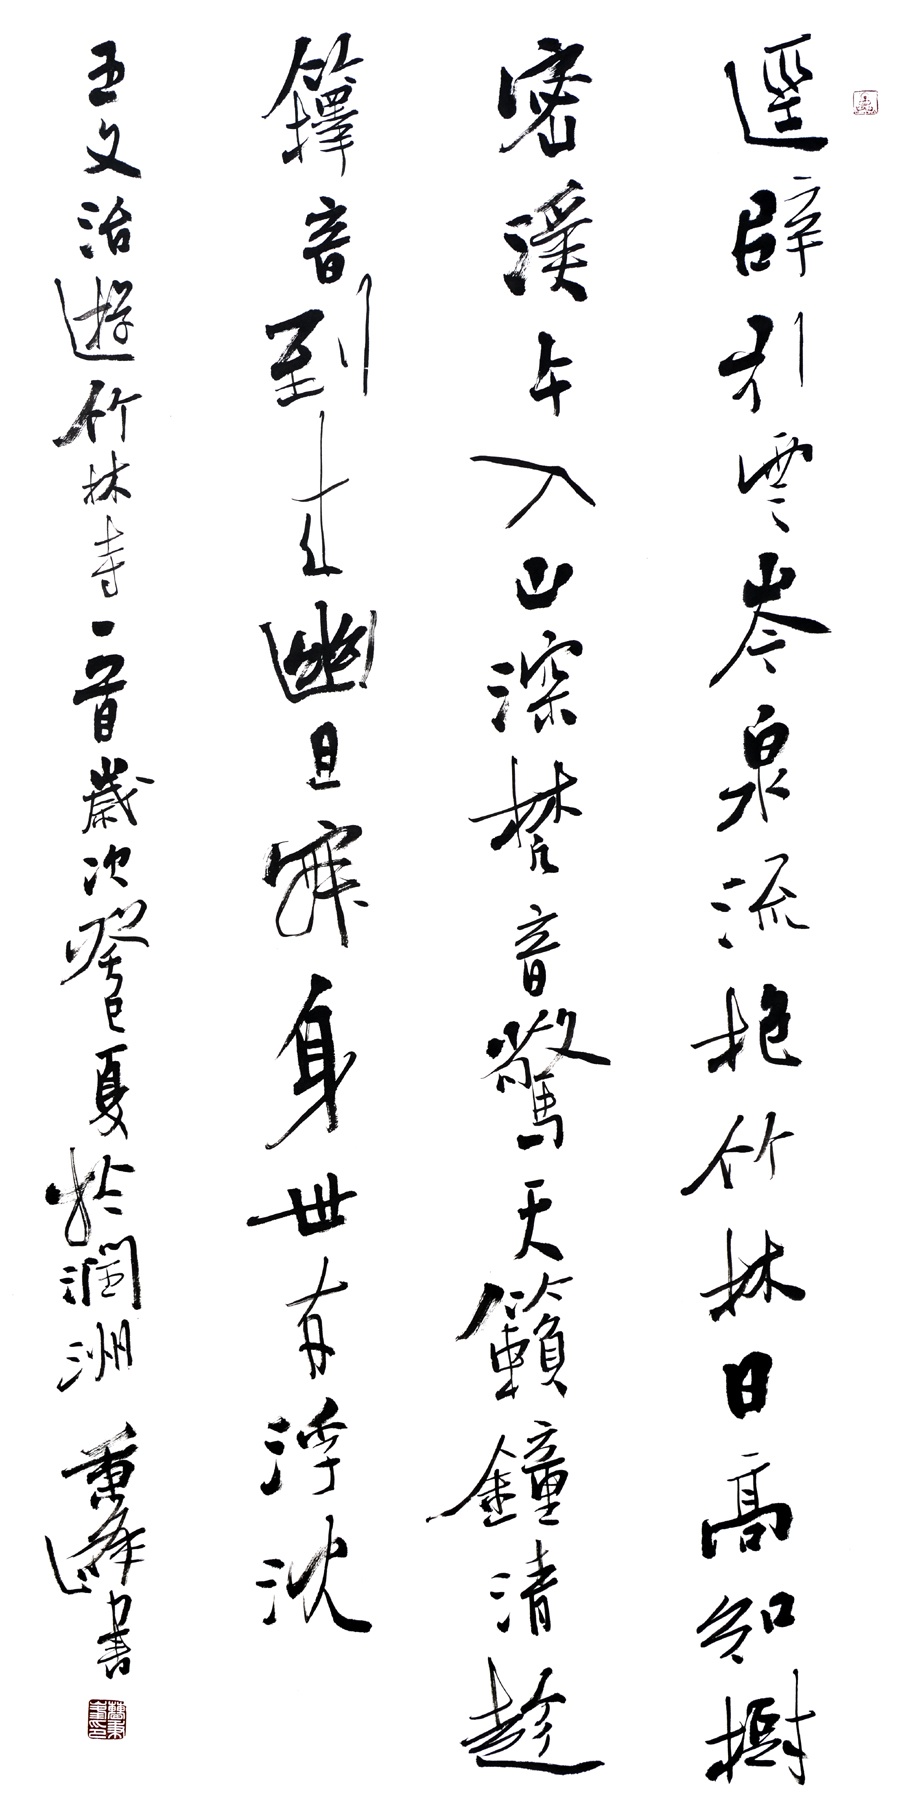 逕辟引雲岑泉流抱竹林日高知樹
密溪午入山深梵音驚天籟鐘清趁
籜音到來幽且寂身世有浮沈
王文治遊竹林寺一首歲次癸巳夏於潤洲 秉峰書